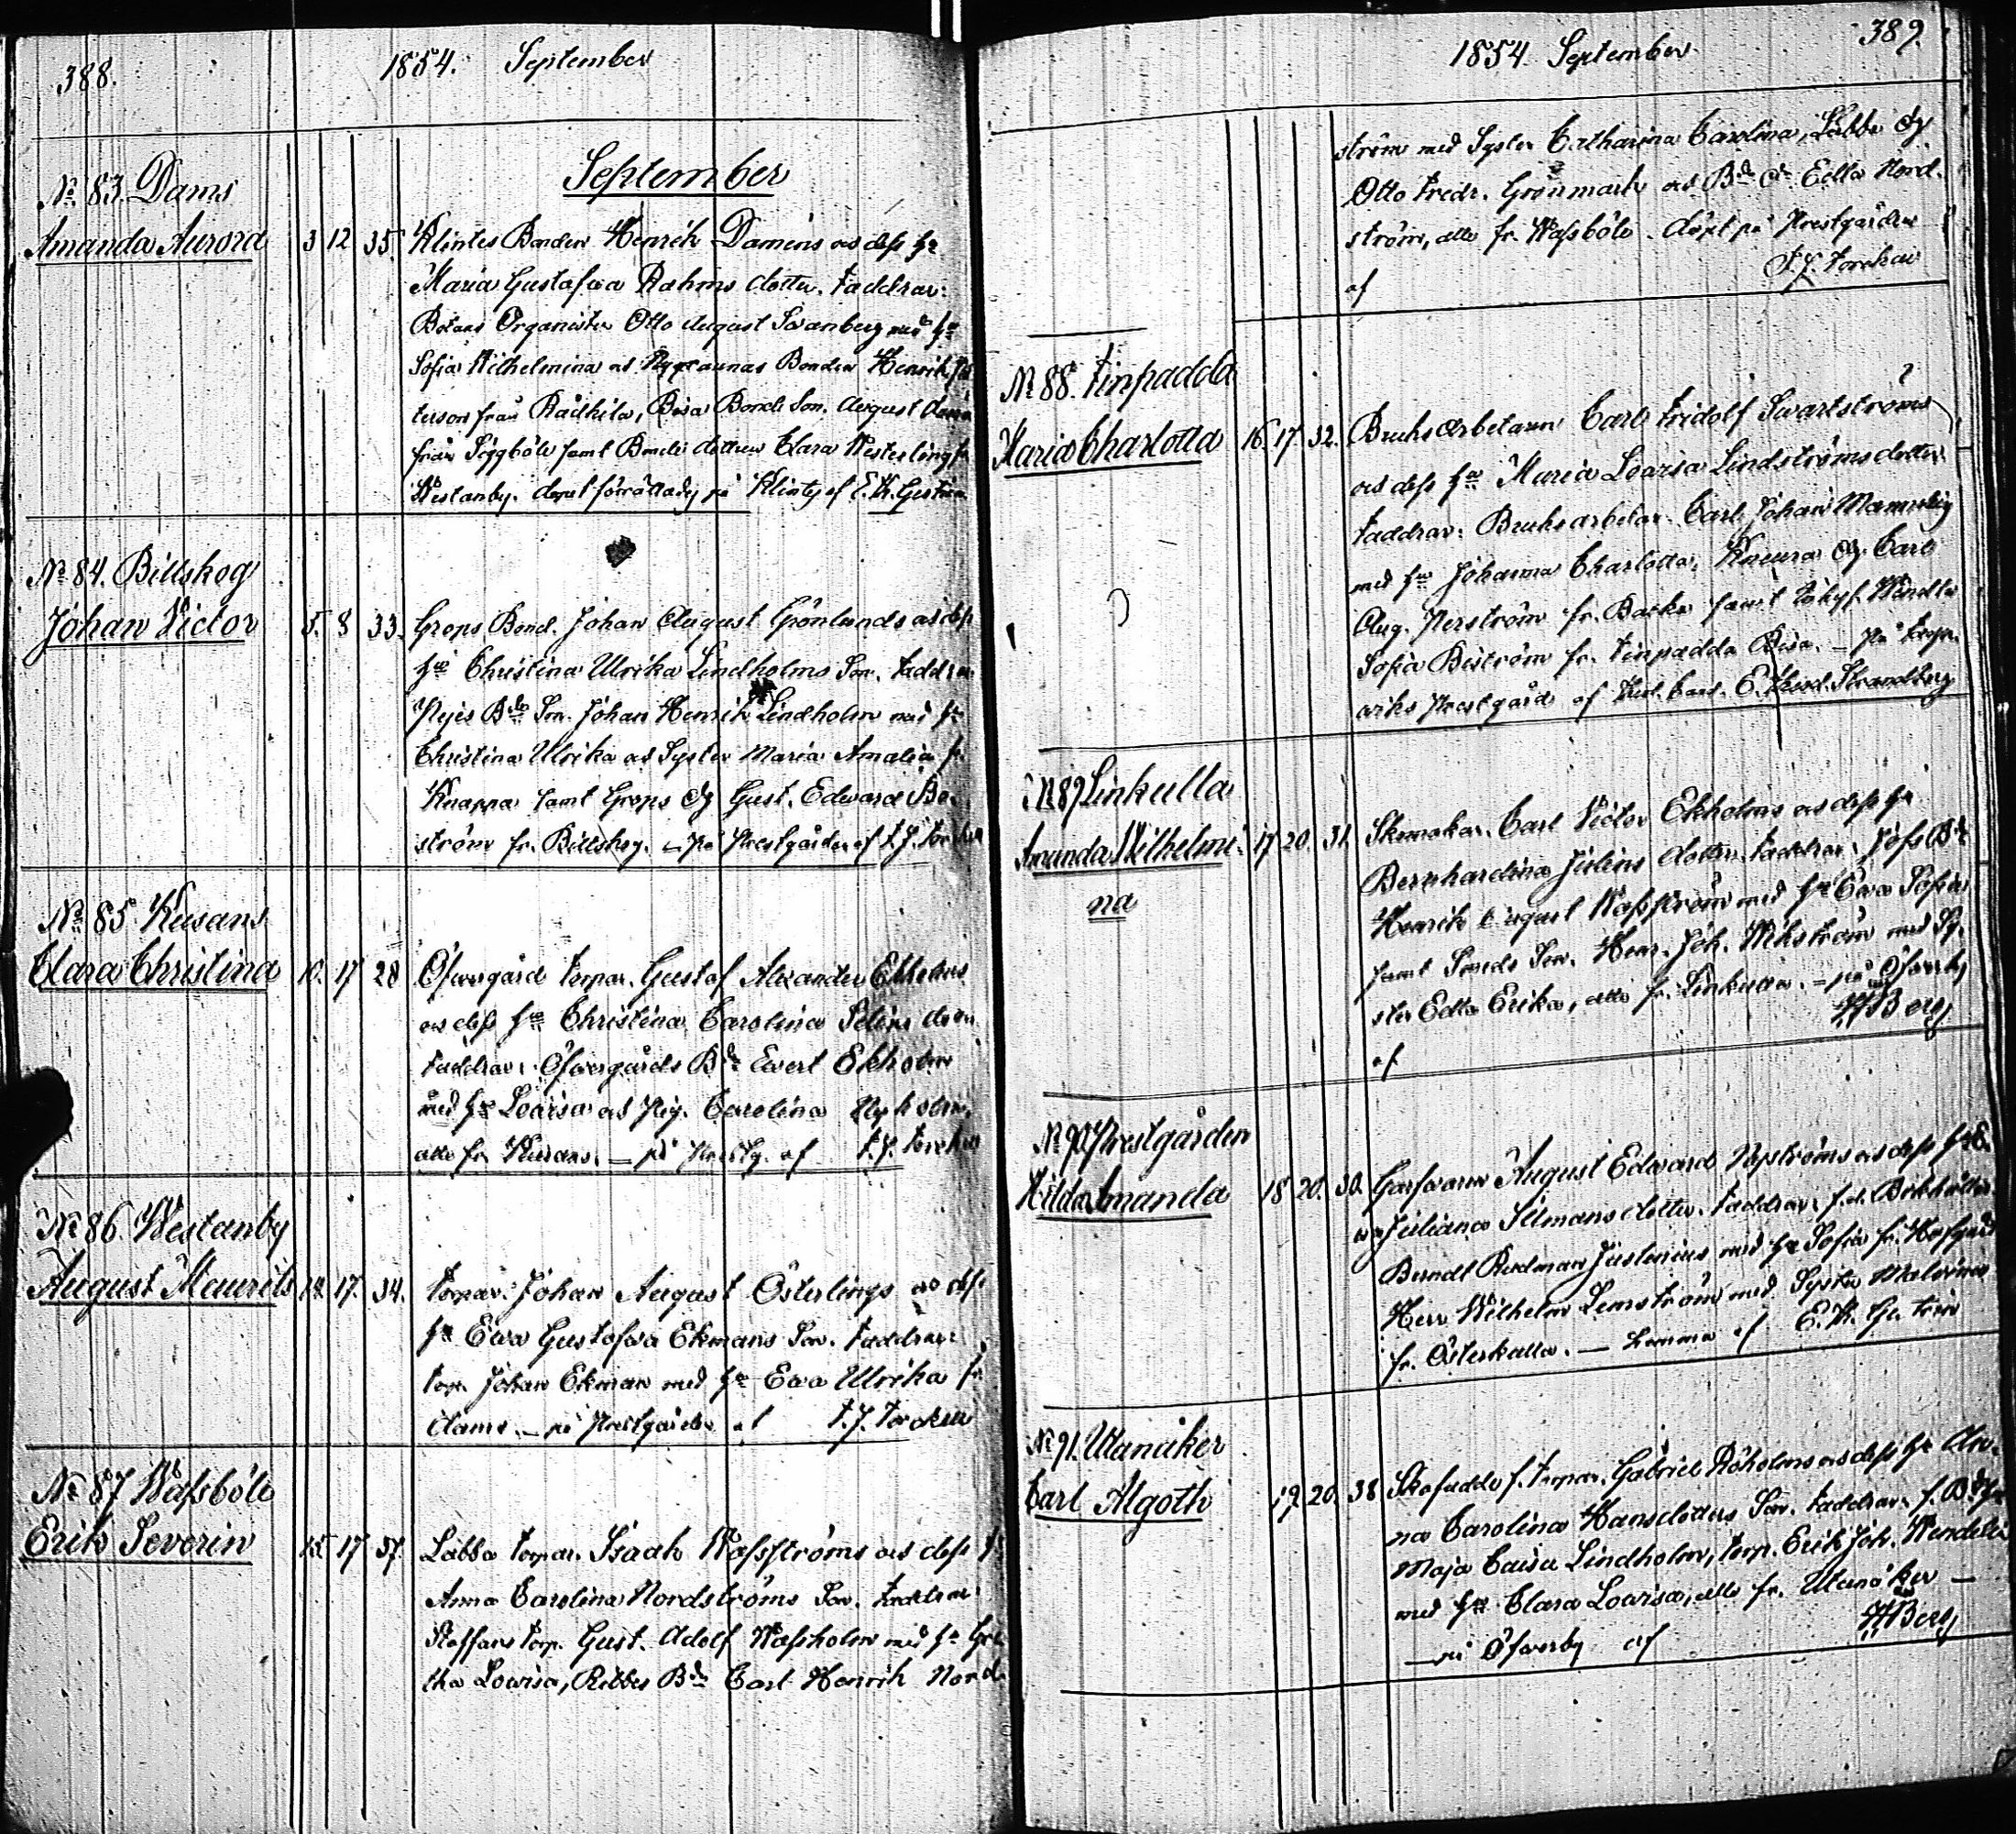 388.
1854. September
September
No 83. Dams
Amanda Aurora 3 12 35. Klintes Bonden Henrik Daméns as dess hu
Maria Gustafva Rahms dotter. Faddrar:
Botans Organisten Otto August Svanberg med hu
Sofia Wilhelmina as Bonden Henrik
terson från Rådkila, Bisa Bonde Son. August
från Söggböle samt Bonde dottren Clara Westerling fr
Westanby. dopet förrättadz på Klintz af E. W.
No 84. Billskog
Johan Victor 5. 8 33. Grops Bond. Johan August Grönlunds as dess
hu Christina Ulrika Lindholms Son. Faddrar
Nyjis Bde Son. Johan Henrik Lindholm med hu
Christina Ulrika as Syster Maria Amalia fr.
Knappa samt Grops Dg Gust. Edward Bo-
ström fr. Billskog. — På Prestgården af F. J.
No 85 Kusans
Clara Christina 10. 17 28 Öfvergård torpar. Gustaf Alexander Ekholms
as dess hu Christina Carolina Selins dotter
Faddrar: Öfvergårds Bde Evert Ekholm
med hu Lovisa as Pig. Carolina Nyholm,
alla fr. Kusans. — på Prestg. af F. J.
No 86. Westanby
August Maurits 14. 17. 34. torpar. Johan August Österlings as dess
hu Eva Gustafva Ekmans Son. Faddrar:
torp. Johan Ekman med hu Eva Ulrika fr.
Dams — på Prestgården af F. J.
No 87 Wassböle
Erik Severin 15. 17 37. Labba torpar. Isaak Wassströms as dess hu
Anna Carolina Nordströms Son. Faddrar
Staffans torp. Gust. Adolf Wassholm med hu Gre-
tha Lovisa, Ribbes Bde Carl Henrik Nord-
389.
1854 September
ström med Syster Catharina Carolina, Labba Dg
Otto Fredr. Grönmark as Bde Dr Edla Nord-
ström, alla fr. Wassböle. döpt på Prestgården
af F. J.
No 88. Finpadda
Maria Charlotta 16. 17. 32. Bruks Arbetaren Carl Fridolf Swartströms
as dess hu Maria Lovisa Lindströms dotter
Faddrar: Bruksarbetar. Carl Johan
med hu Johanna Charlotta, Dg. Carl
Aug. fr. Backa samt
Sofia Biström fr. Finpadda Bisa. — På
Prestgård af E. Strandberg
No 89 Linkulla
Amanda Wilhelmi- 17 20. 31. Skomakar. Carl Victor Ekholms as dess hu
na
Bernhardina Julins dotter. Faddrar: Joss Bde
Henrik August Wassström med hu Eva Sofia
samt Smeds Son. Henr. Joh. Wikström med Sy-
ster Edla Erika, alla fr. Linkulla. — på Öfverby
af HBerg
No 90 Prestgården
Hilda Amanda 18 20. 30. Garfvaren August Edward Nyströms as dess hu
Juliana Silmans dotter. Faddrar: f.d.
Berndt Justenius med hu Sofia fr.
Herr Wilhelm Lemström med Syster Malvina
fr. Österkulla. — Hemma af E. W.
No 91. Utanåker
Carl Algoth 19. 20. 38 Skafadde f. torpar. Gabriel Råholms as dess hu An-
na Carolina Hansdotters Son. Faddrar: f. Bde
Maja Caisa Lindholm, torp. Erik Joh. Wendelin
med hu Clara Lovisa, alla fr. Utanåker —
— på Öfverby af HBerg